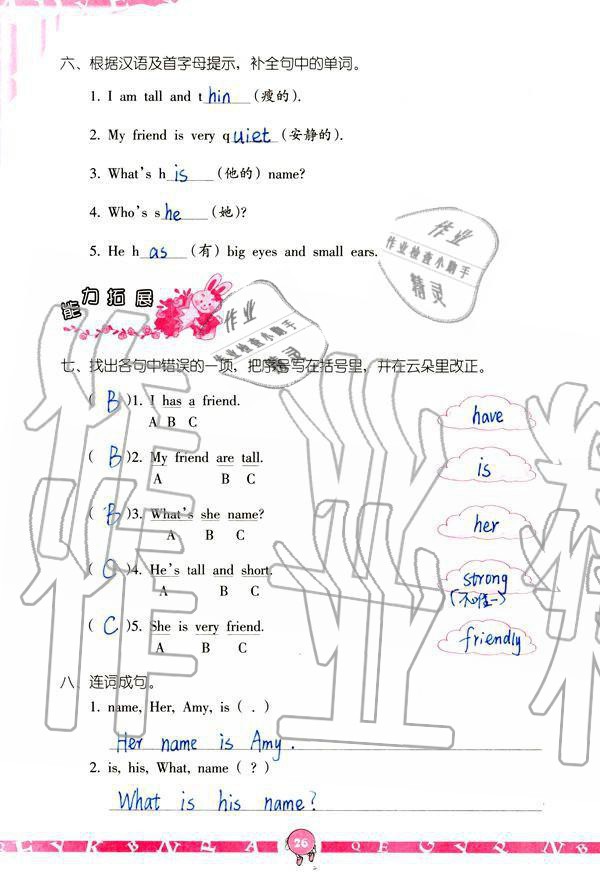 六、根据汉语及首字母提示，补全句中的单词。
1. I am tall and thin (瘦的).
2. My friend is very quiet (安静的).
3. What's his (他的) name?
4. Who's she (她)?
5. He has (有) big eyes and small ears.
作业
作业检查小助手
精灵
能力拓展
作业
作业检查小助手
精灵
七、找出各句中错误的一项，把序号写在括号里，并在云朵里改正。
( B )1. I has a friend. have
A B C
( B )2. My friend are tall. is
A B C
( B )3. What's she name? her
A B C
( C )4. He's tall and short. strong
A B C (不唯一)
( C )5. She is very friend. friendly
A B C
八、连词成句。
1. name, Her, Amy, is ( . )
Her name is Amy.
2. is, his, What, name ( ? )
What is his name?
26